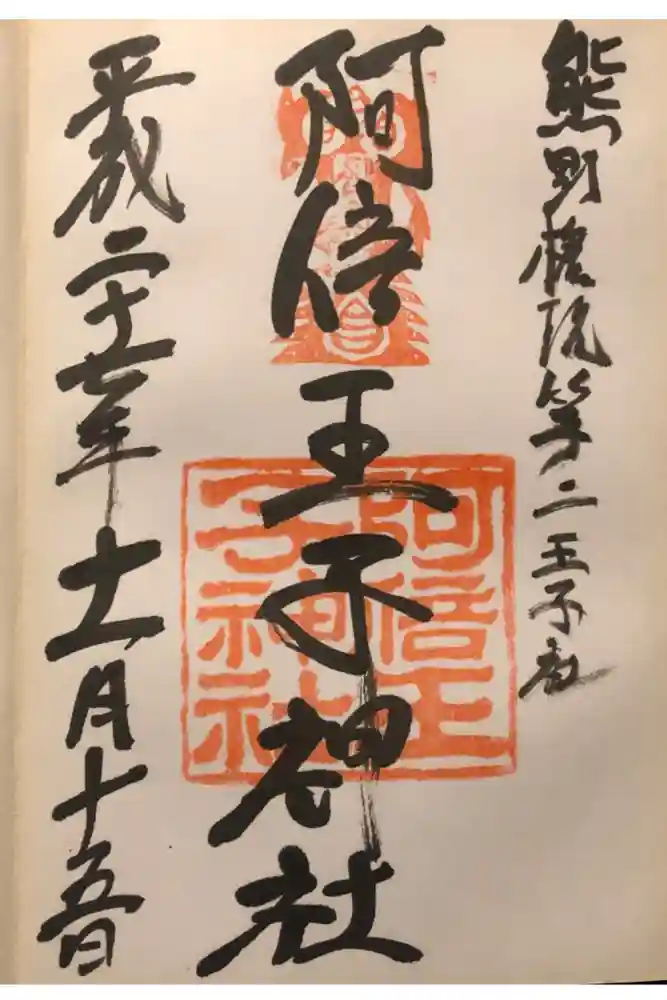 熊野権現第二王子社
阿倍王子神社
阿倍王
子神社
平成二十七年十一月十五日